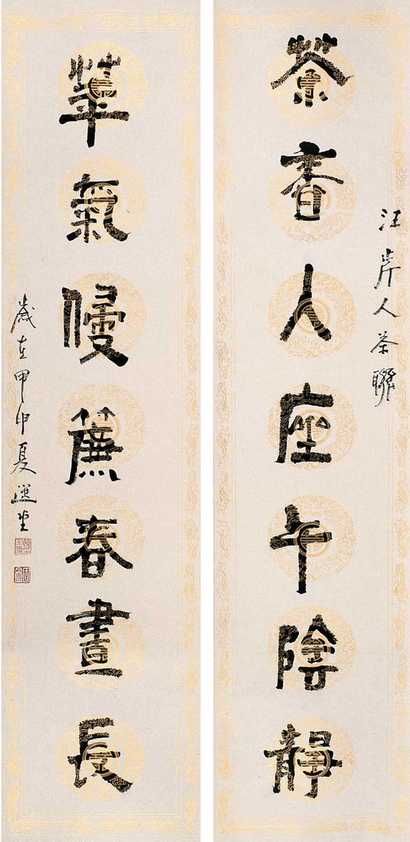 汪近人茶聯
茶香人座午陰靜
華氣侵簾春晝長
歲在甲申夏選堂